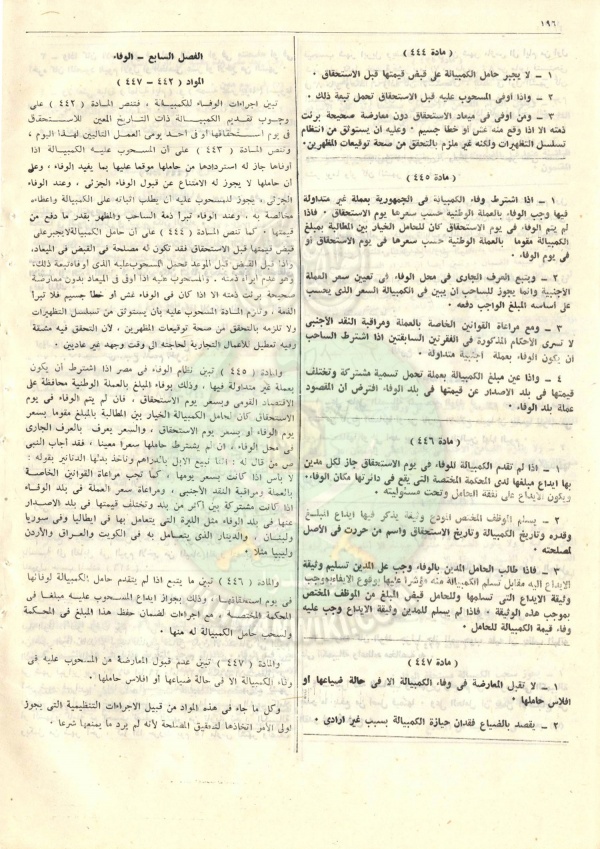 ١٩٦
مادة (٤٤٤)
١ – لا يجبر حامل الكمبيالة على قبض قيمتها قبل الاستحقاق ٠
٢ – واذا أوفى المسحوب عليه قبل الاستحقاق تحمل تبعة ذلك ٠
٣ – ومن أوفى فى ميعاد الاستحقاق دون معارضة صحيحة برئت
ذمته الا اذا وقع منه غش أو خطأ جسيم ٠ وعليه ان يستوثق من انتظام
تسلسل التظهيرات ولكنه غير ملزم بالتحقق من صحة توقيعات المظهرين ٠
مادة (٤٤٥)
١ – اذا اشترط وفاء الكمبيالة فى الجمهورية بعملة غير متداولة
فيها وجب الوفاء بالعملة الوطنية حسب سعرها يوم الاستحقاق ٠ فاذا
لم يتم الوفاء فى يوم الاستحقاق كان للحامل الخيار بين المطالبة بمبلغ
الكمبيالة مقوما بالعملة الوطنية حسب سعرها فى يوم الاستحقاق أو
فى يوم الوفاء ٠
٢ – ويتبع العرف الجارى فى محل الوفاء فى تعيين سعر العملة
الأجنبية وانما يجوز للساحب ان يبين فى الكمبيالة السعر الذى يحسب
على أساسه المبلغ الواجب دفعه ٠
٣ – ومع مراعاة القوانين الخاصة بالعملة ومراقبة النقد الأجنبى
لا تسرى الأحكام المذكورة فى الفقرتين السابقتين اذا اشترط الساحب
أن يكون الوفاء بعملة أجنبية متداولة ٠
٤ – واذا عين مبلغ الكمبيالة بعملة تحمل تسمية مشتركة وتختلف
قيمتها فى بلد الاصدار عن قيمتها فى بلد الوفاء افترض أن المقصود
عملة بلد الوفاء ٠
مادة (٤٤٦)
١ – اذا لم تقدم الكمبيالة للوفاء فى يوم الاستحقاق جاز لكل مدين
بها ايداع مبلغها لدى المحكمة المختصة التى يقع فى دائرتها مكان الوفاء ٠
ويكون الايداع على نفقة الحامل وتحت مسئوليته ٠
٢ – يسلم الموظف المختص المودع وثيقة يذكر فيها ايداع المبلغ
وقدره وتاريخ الكمبيالة وتاريخ الاستحقاق واسم من حررت فى الأصل
لمصلحته ٠
٣ – فاذا طالب الحامل المدين بالوفاء وجب على المدين تسليم وثيقة
الايداع اليه مقابل تسلم الكمبيالة منه مؤشرا عليها بوقوع الايفاء بموجب
وثيقة الايداع التى تسلمها وللحامل قبض المبلغ من الموظف المختص
بموجب هذه الوثيقة ٠ فاذا لم يسلم للمدين وثيقة الايداع وجب عليه
وفاء قيمة الكمبيالة للحامل ٠
مادة (٤٤٧)
١ – لا تقبل المعارضة فى وفاء الكمبيالة الا فى حالة ضياعها أو
افلاس حاملها ٠
٢ – يقصد بالضياع فقدان حيازة الكمبيالة بسبب غير ارادى ٠
الفصل السابع – الوفاء
المواد (٤٤٢ – ٤٤٧)
تبين اجراءات الوفاء للكمبيالة ، فتنص المادة (٤٤٢) على
وجوب تقديم الكمبيالة ذات التاريخ المعين للاستحقاق
فى يوم استحقاقها أو فى احد يومى العمل التاليين لهذا اليوم ،
وتنص المادة (٤٤٣) على أن المسحوب عليه الكمبيالة اذا
أوفاها جاز له استردادها من حاملها موقعا عليها بما يفيد الوفاء ، وعلى
أن حاملها لا يجوز له الامتناع عن قبول الوفاء الجزئى ، وعند الوفاء
الجزئى ، يجوز للمسحوب عليه أن يطلب اثباته على الكمبيالة واعطاءه
مخالصة به ، وعند الوفاء تبرأ ذمة الساحب والمظهر بقدر ما دفع من
قيمتها ٠ كما تنص المادة (٤٤٤) على أن حامل الكمبيالة لايجبر على
قبض قيمتها قبل الاستحقاق فقد تكون له مصلحة فى القبض فى الميعاد،
واذا قبل القبض قبل الموعد تحمل المسحوب عليه الذى أوفاه تبعة ذلك،
وهو عدم ابراء ذمته ، والمسحوب عليه اذا أوفى فى الميعاد بدون معارضة
صحيحة برئت ذمته الا اذا كان فى الوفاء غش أو خطأ جسيم فلا تبرأ
الذمة ، وتلزم المادة المسحوب عليه بأن يستوثق من تسلسل التظهيرات
ولا تلزمه بالتحقق من صحة توقيعات المظهرين ، لأن التحقق فيه مشقة
وفيه تعطيل للأعمال التجارية لحاجته الى وقت وجهد غير عاديين ٠
والمادة (٤٤٥) تبين نظام الوفاء فى مصر اذا اشترط أن يكون
بعملة غير متداولة فيها ، وذلك بوفاء المبلغ بالعملة الوطنية محافظة على
الاقتصاد القومى وبسعر يوم الاستحقاق ، فان لم يتم الوفاء فى يوم
الاستحقاق كان لحامل الكمبيالة الخيار بين المطالبة بالمبلغ مقوما بسعر
يوم الوفاء أو بسعر يوم الاستحقاق ، والسعر يعرف بالعرف الجارى
فى محل الوفاء ، ان لم يشترط حاملها سعرا معينا ، فقد أجاب النبى
ص من قال له : اننا نبيع الابل بالدراهم ونأخذ بدلها الدنانير بقوله :
لا بأس اذا كانت بسعر يومها ، كما تجب مراعاة القوانين الخاصة
بالعملة ومراقبة النقد الأجنبى ، ومراعاة سعر العملة فى بلد الوفاء
اذا كانت مشتركة بين أكثر من بلد وتختلف قيمتها فى بلد الاصدار
عنها فى بلد الوفاء مثل الليرة التى يتعامل بها فى ايطاليا وفى سوريا
ولبنان ، والدينار الذى يتعامل به فى الكويت والعراق والأردن
وليبيا مثلا ٠
والمادة (٤٤٦) تبين ما يتبع اذا لم يتقدم حامل الكمبيالة لوفائها
فى يوم استحقاقها ، وذلك بجواز ايداع المسحوب عليه مبلغها فى
المحكمة المختصة ، مع اجراءات لضمان حفظ هذا المبلغ فى المحكمة
ولسحب حامل الكمبيالة له منها ٠
والمادة (٤٤٧) تبين عدم قبول المعارضة من المسحوب عليه فى
وفاء الكمبيالة الا فى حالة ضياعها أو افلاس حاملها ٠
وكل ما جاء فى هذه المواد من قبيل الاجراءات التنظيمية التى يجوز
لولى الأمر اتخاذها لتحقيق المصلحة لأنه لم يرد ما يمنعها شرعا ٠